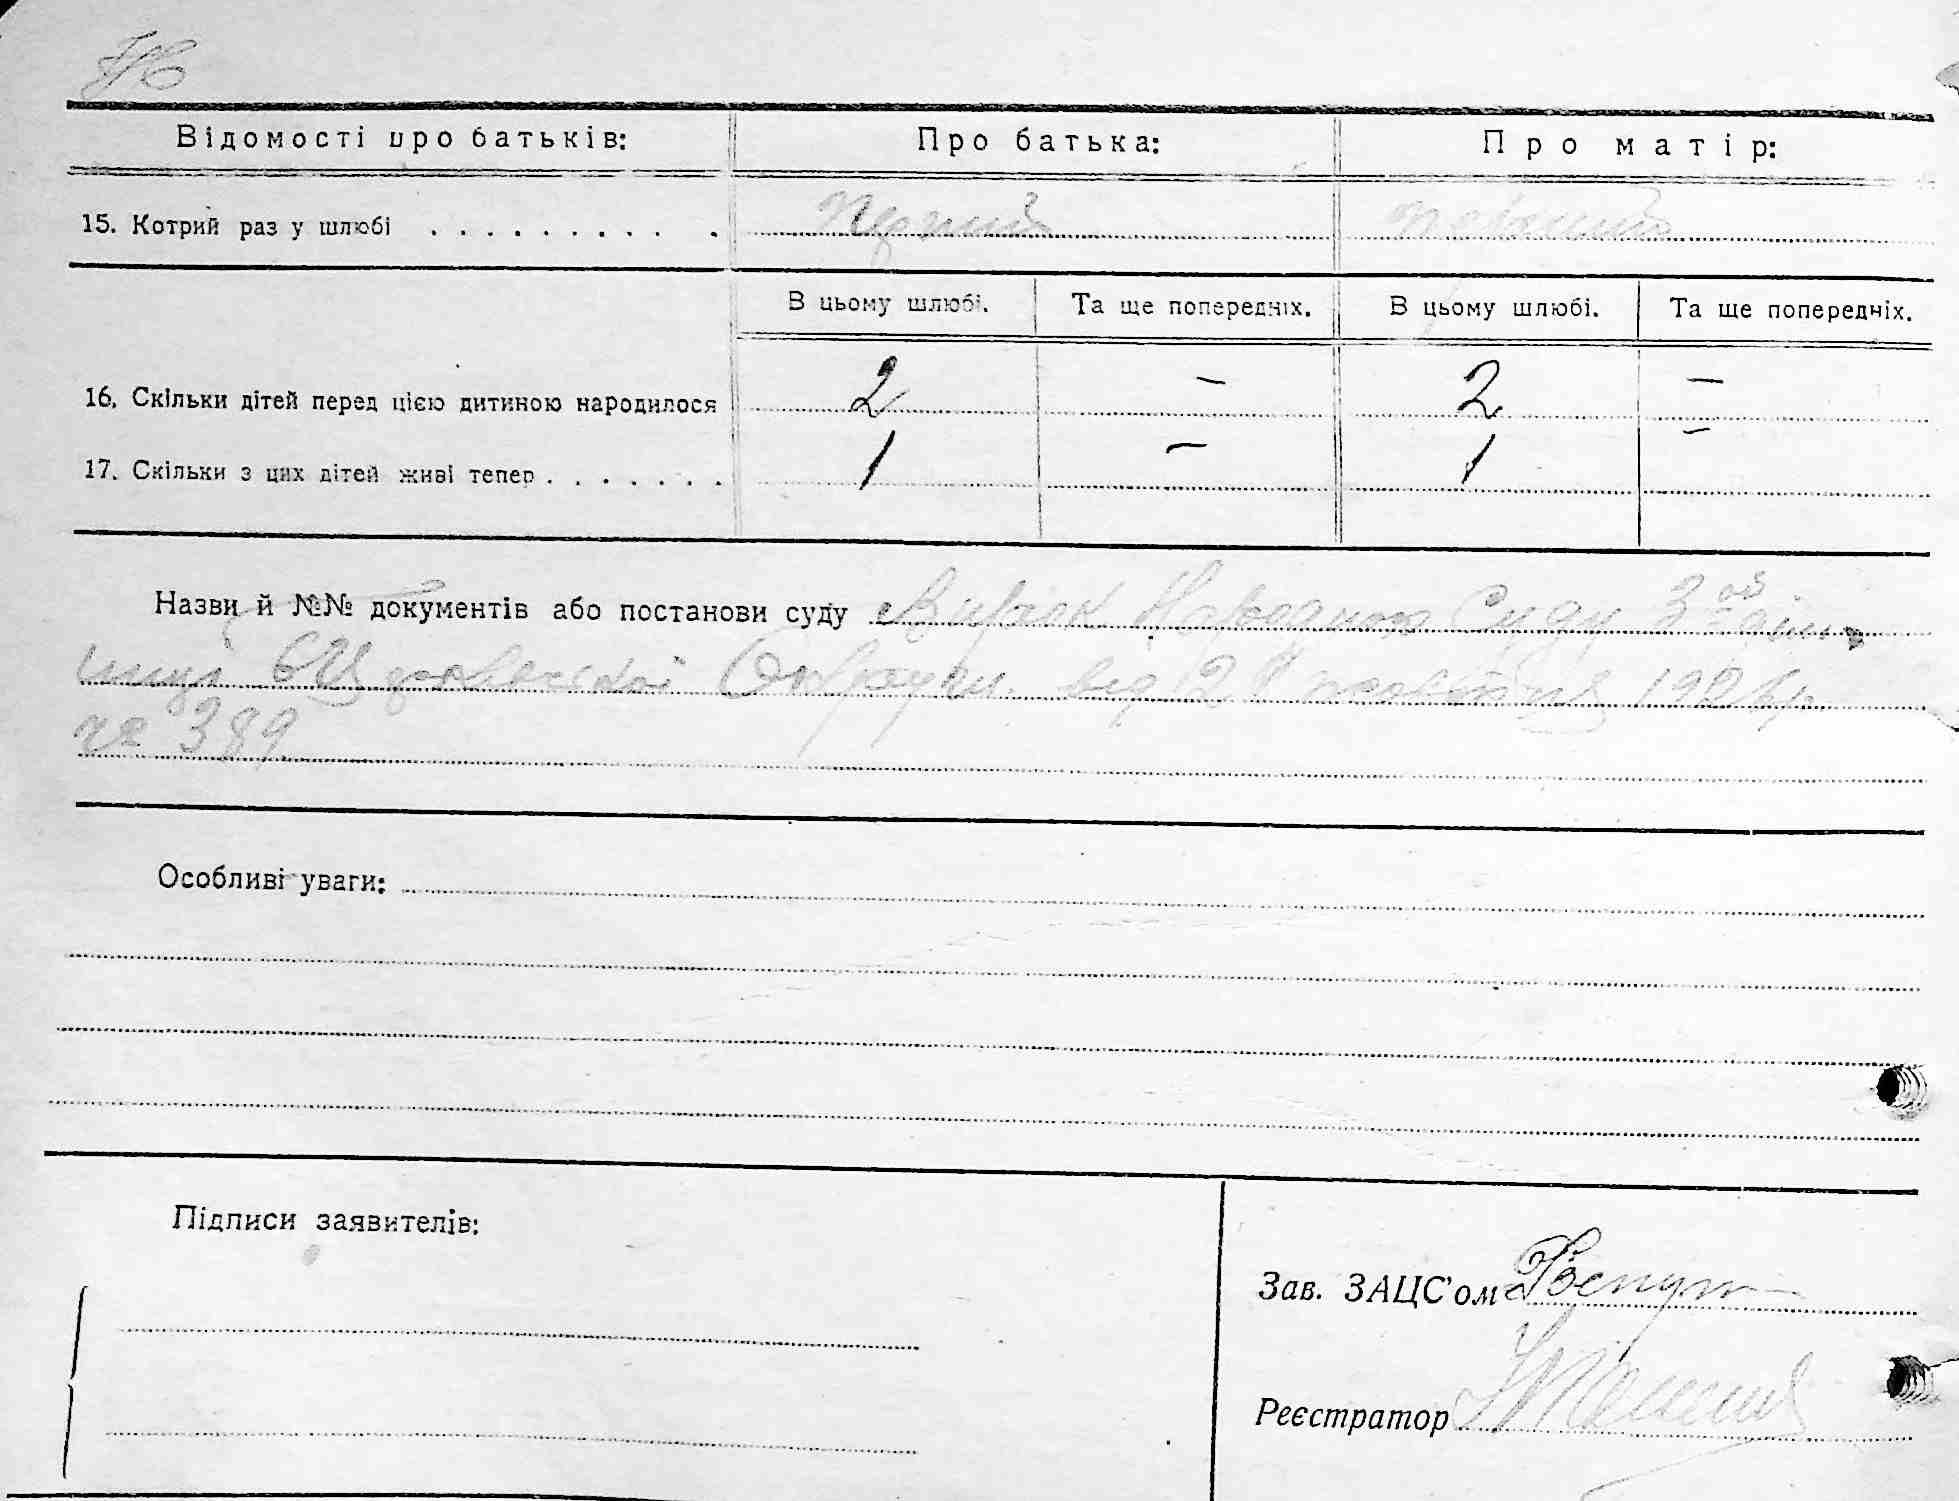 Відомості про батьків: Про батька: Про матір:
15. Котрий раз у шлюбі . . . . . . . . . . Перший Перший
В цьому шлюбі. Та ще попередніх. В цьому шлюбі. Та ще попередніх.
16. Скільки дітей перед цією дитиною народилося 2 – 2 –
17. Скільки з цих дітей живі тепер . . . . . . . 1 – 1 –
Назви й №№ документів або постанови суду Народного Суду 3
Округи від 192
№ 389
Особливі уваги:
Підписи заявителів:
Зав. ЗАЦС'ом
Реєстратор